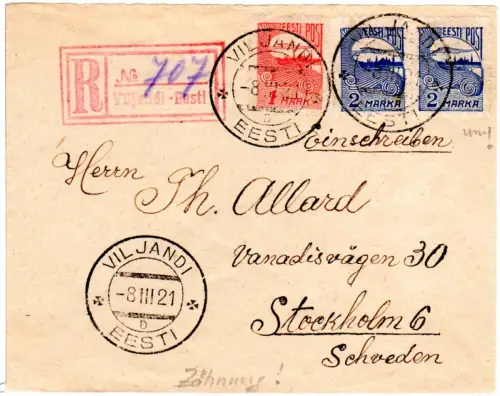 R № 707
Viljandi - Eesti
VILJANDI
-8 III 21
D
EESTI
EESTI POST
1 MARK
EESTI POST
2 MARKA
EESTI POST
2 MARKA
EESTI
Einschreiben
Herrn Th. Allard
Vanadisvägen 30
Stockholm 6
Schveden
VILJANDI
-8 III 21
D
EESTI
Zähnung!